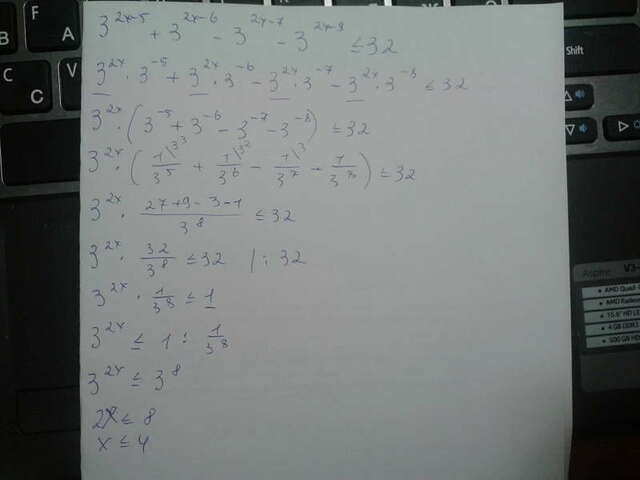 3^{2x-5} + 3^{2x-6} - 3^{2x-7} - 3^{2x-8} ≤ 32
3^{2x} · 3^{-5} + 3^{2x} · 3^{-6} - 3^{2x} · 3^{-7} - 3^{2x} · 3^{-8} ≤ 32
3^{2x} · (3^{-5} + 3^{-6} - 3^{-7} - 3^{-8}) ≤ 32
3^{2x} · (1\3^3/3^5 + 1\3^2/3^6 - 1\3/3^7 - 1/3^8) ≤ 32
3^{2x} · (27+9-3-1)/3^8 ≤ 32
3^{2x} · 32/3^8 ≤ 32 | : 32
3^{2x} · 1/3^8 ≤ 1
3^{2x} ≤ 1 : 1/3^8
3^{2x} ≤ 3^8
2x ≤ 8
x ≤ 4
F
A
C
V
Shift
Aspire V3-
AMD Quad-
AMD Radeon
15.6" HD LE
4 GB DDR3
500 GB HD